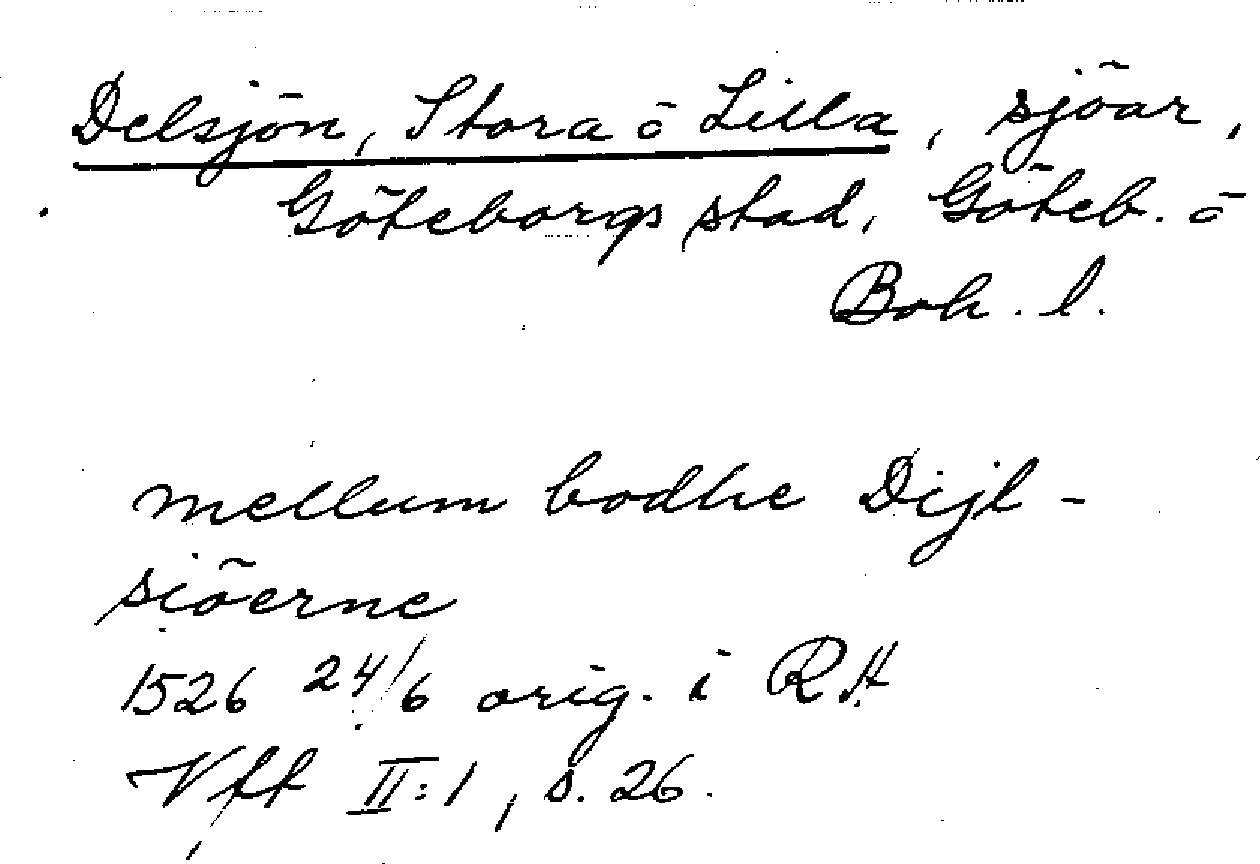 Delsjön, Stora o Lilla, sjöar,
Göteborgs stad, Göteb. o
Boh. l.
mellum bodhe Dijl-
siöerne
1526 24/6 orig. i RA
Vff II:1, s. 26.